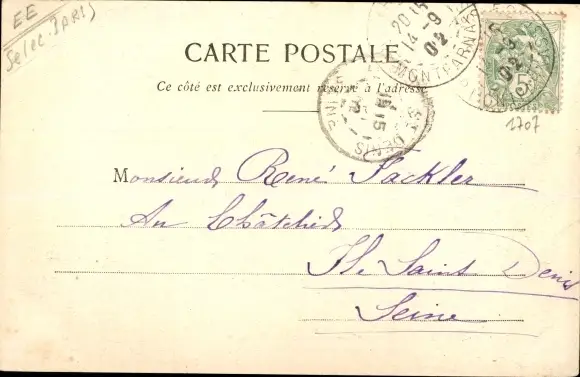 EE
Selec. PARIS
20 15
14 - 9
02
MONTPARNASSE
CARTE POSTALE
Ce côté est exclusivement réservé à l'adresse
ST. DENIS
1707
Monsieur René Sackler
Au
Ile Saint Denis
Seine